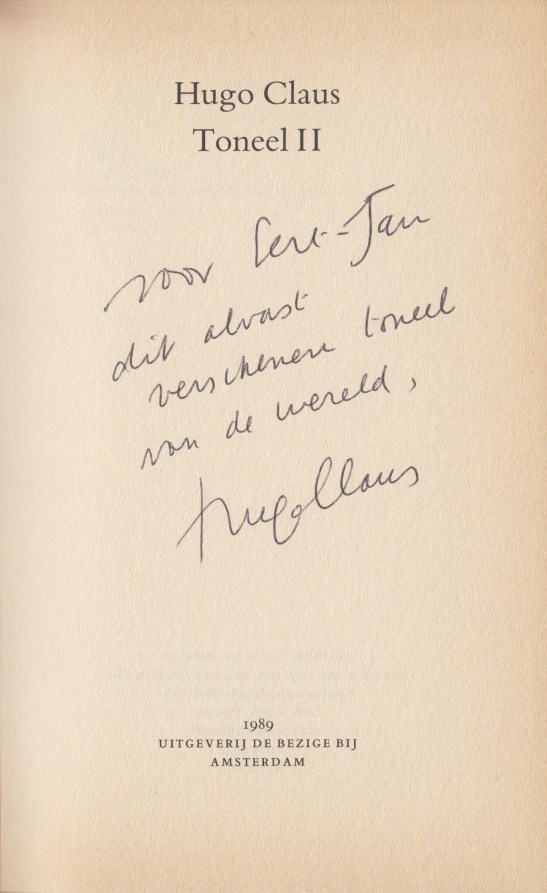 Hugo Claus
Toneel II
voor Gert-Jan
dit alvast
verschenen toneel
van de wereld,
Hugo Claus
1989
UITGEVERIJ DE BEZIGE BIJ
AMSTERDAM